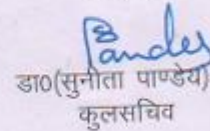 Pandey
डा0(सुनीता पाण्डेय)
कुलसचिव